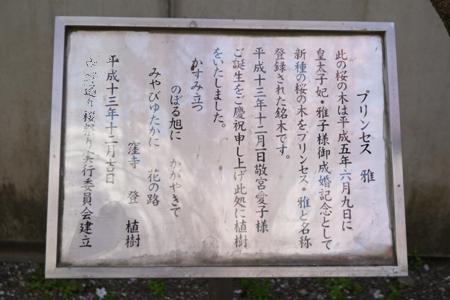 プリンセス 雅
此の桜の木は平成五年六月九日に
皇太子妃・雅子様御成婚記念として
新種の桜の木をプリンセス・雅と名称
登録された銘木です。
平成十三年十二月一日敬宮愛子様
ご誕生をご慶祝申し上げ此処に植樹
をいたしました。
かすみ立つ
のぼる旭に かがやきて
みやびゆたかに 花の路
窪寺 登 植樹
平成十三年十二月吉日
通り桜まつり実行委員会建立